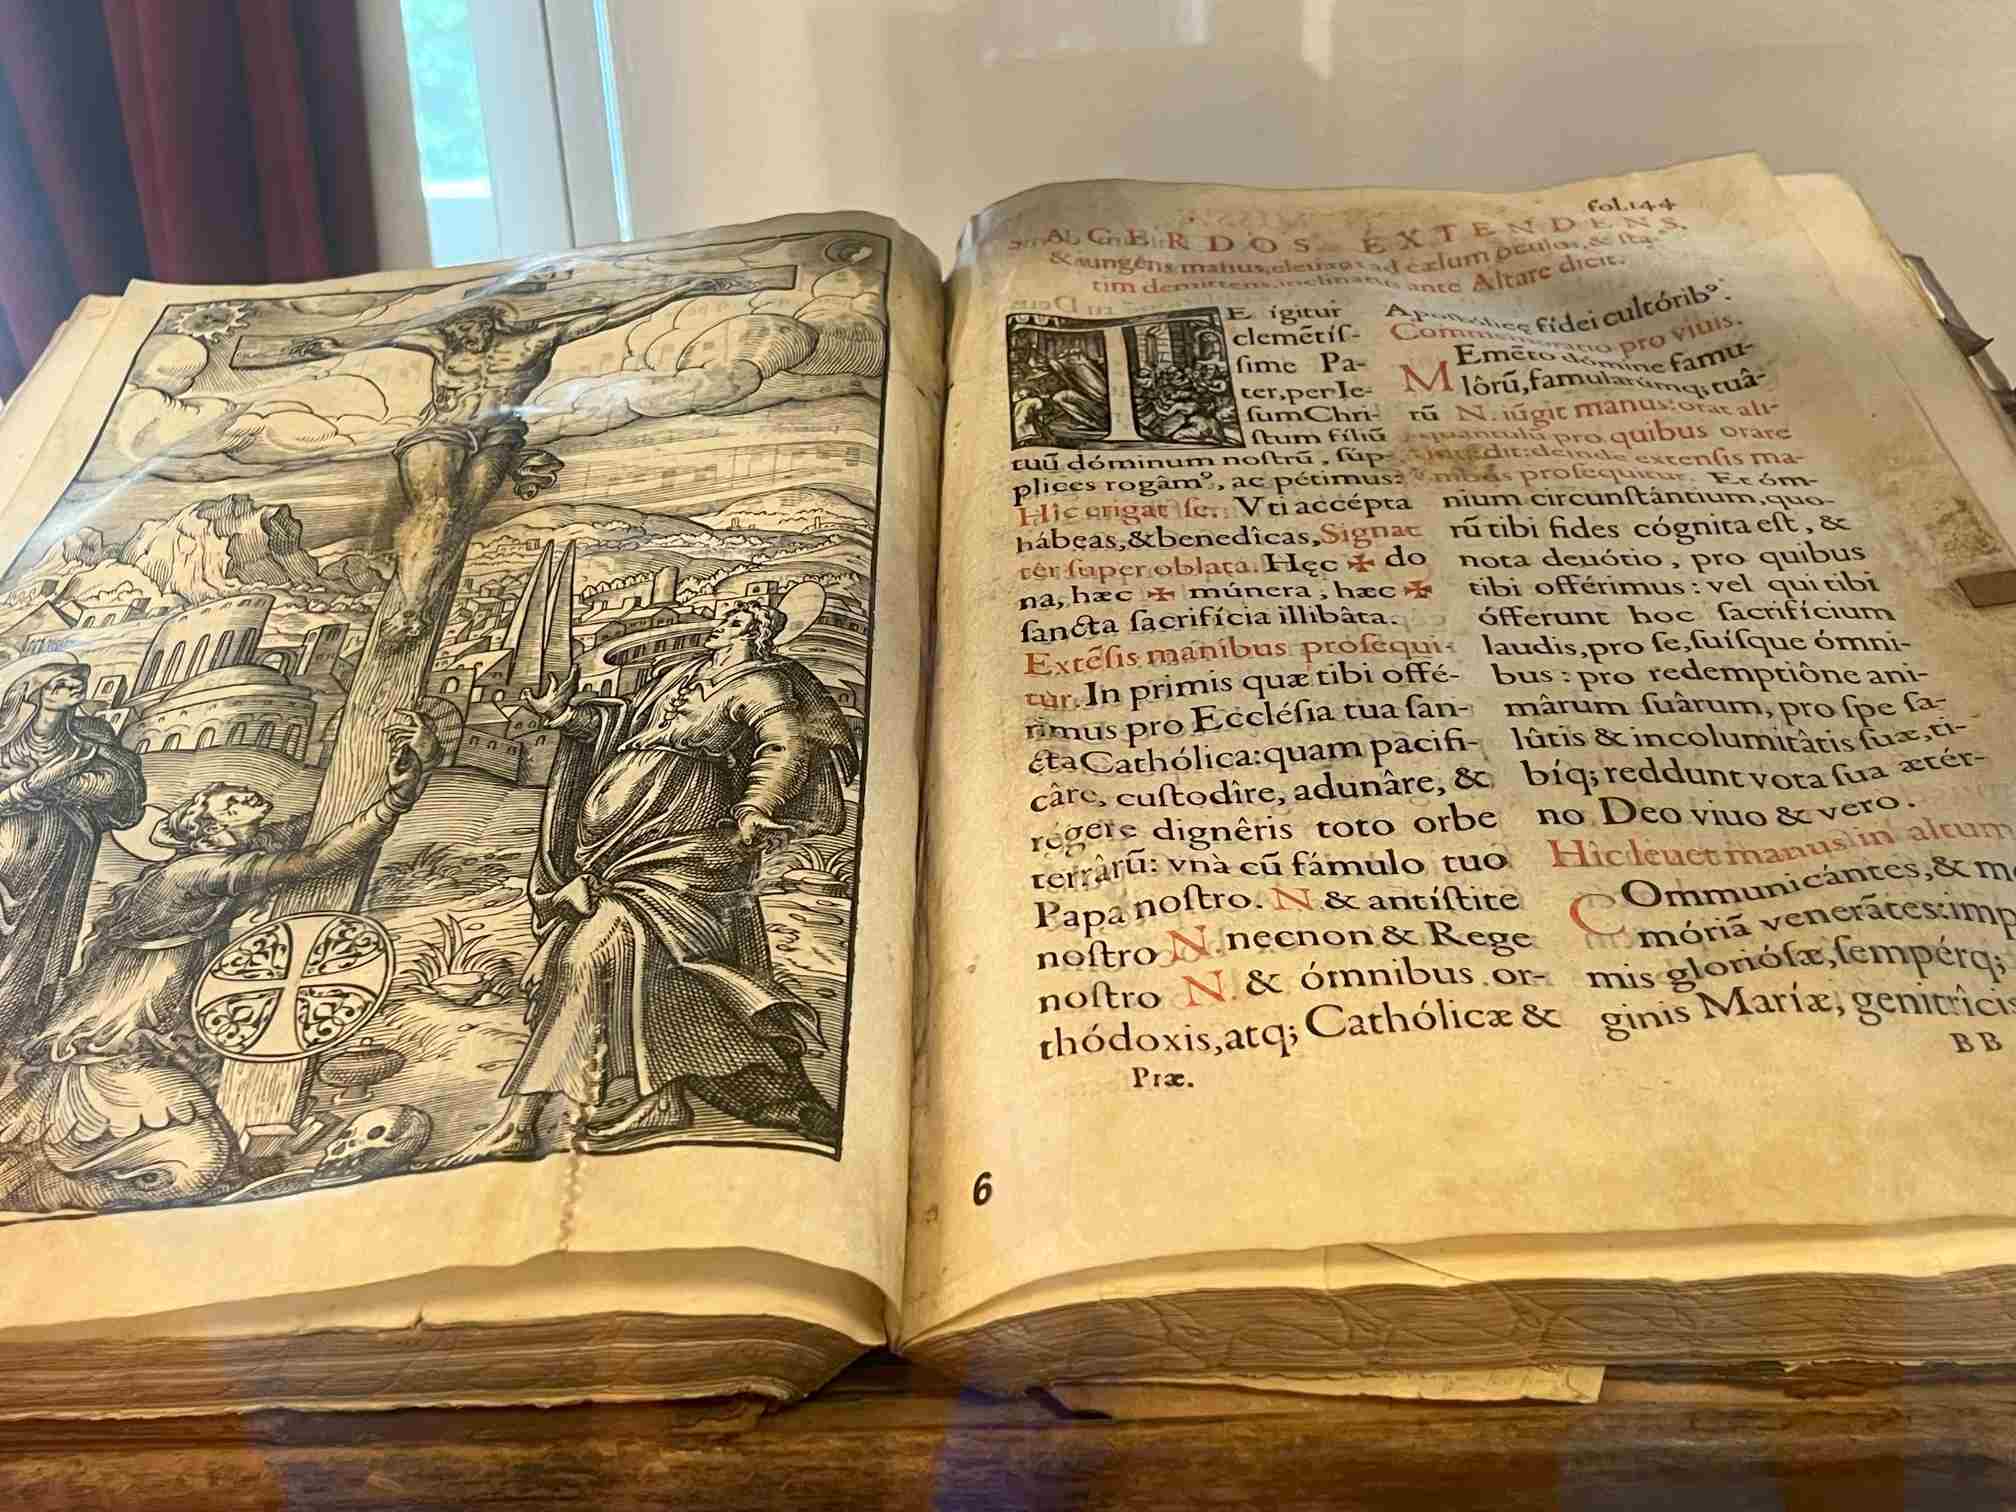 fol.144
SACERDOS EXTENDENS,
& iungens manus, eleuatis ad cælum oculos, & sta-
tim demittens, inclinatus ante Altare dicit.
TE ígitur
clemẽtís-
sime Pa-
ter, per Ie-
sum Chri-
stum fíliũ
tuũ dóminum nostrũ, súp-
plices rogâmꝰ, ac pétimus:
Hîc erigat se. Vti accépta
hábeas, & benedîcas, Signat
ter super oblata. Hęc ✠ do
na, hæc ✠ múnera, hæc ✠
sancta sacrifícia illibâta.
Extẽsis manibus prosequi-
tur. In primis quæ tibi offé-
rimus pro Ecclésia tua san-
cta Cathólica: quam pacifi-
câre, custodîre, adunâre, &
régere dignêris toto orbe
terrârũ: vnà cũ fámulo tuo
Papa nostro. N. & antístite
nostro N. necnon & Rege
nostro N. & ómnibus or-
thódoxis, atq; Cathólicæ &
Præ.
Apostólicę fídei cultóribꝰ.
Commemoratio pro viuis.
MEmẽto dómine famu-
lôrũ, famularúmq; tuâ-
rũ N. iũgit manus: orat ali-
quantulũ pro quibus orare
intẽdit: deinde extensis ma-
nibus prosequitur. Et óm-
nium circunstântium, quo-
rũ tibi fides cógnita est, &
nota deuótio, pro quibus
tibi offérimus: vel qui tibi
ófferunt hoc sacrifícium
laudis, pro se, suísque ómni-
bus: pro redemptiône ani-
mârum suârum, pro spe sa-
lûtis & incolumitâtis suæ, ti-
bíq; reddunt vota sua ætér-
no Deo viuo & vero.
Hîc leuet manus in altum
COmmunicántes, & me
móriã venerãtes: imp
mis gloriósæ, sempérq;
ginis Maríæ, genitrîcis
BB
6